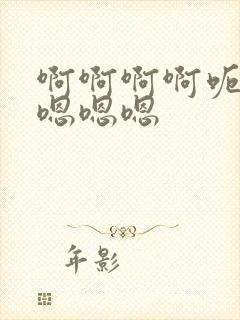 啊啊啊啊呃
嗯嗯嗯
年影